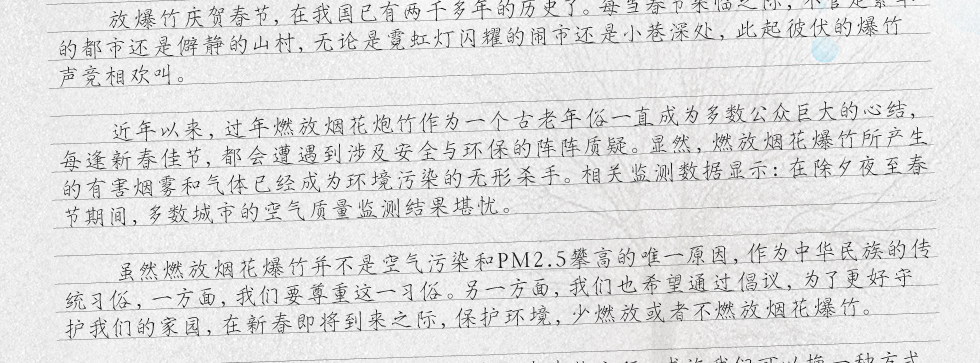 放爆竹庆贺春节，在我国已有两千多年的历史了。每当春节来临之际，不管是繁华
的都市还是僻静的山村，无论是霓虹灯闪耀的闹市还是小巷深处，此起彼伏的爆竹
声竞相欢叫。
近年以来，过年燃放烟花炮竹作为一个古老年俗一直成为多数公众巨大的心结，
每逢新春佳节，都会遭遇到涉及安全与环保的阵阵质疑。显然，燃放烟花爆竹所产生
的有害烟雾和气体已经成为环境污染的无形杀手。相关监测数据显示：在除夕夜至春
节期间，多数城市的空气质量监测结果堪忧。
虽然燃放烟花爆竹并不是空气污染和PM2.5攀高的唯一原因，作为中华民族的传
统习俗，一方面，我们要尊重这一习俗。另一方面，我们也希望通过倡议，为了更好守
护我们的家园，在新春即将到来之际，保护环境，少燃放或者不燃放烟花爆竹。
我们可以换一种方式